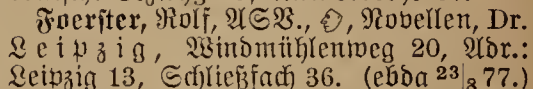 Foerster, Rolf, ASV., Novellen, Dr.
Leipzig, Windmühlenweg 20, Adr.:
Leipzig 13, Schließfach 36. (ebda 23|8 77.)